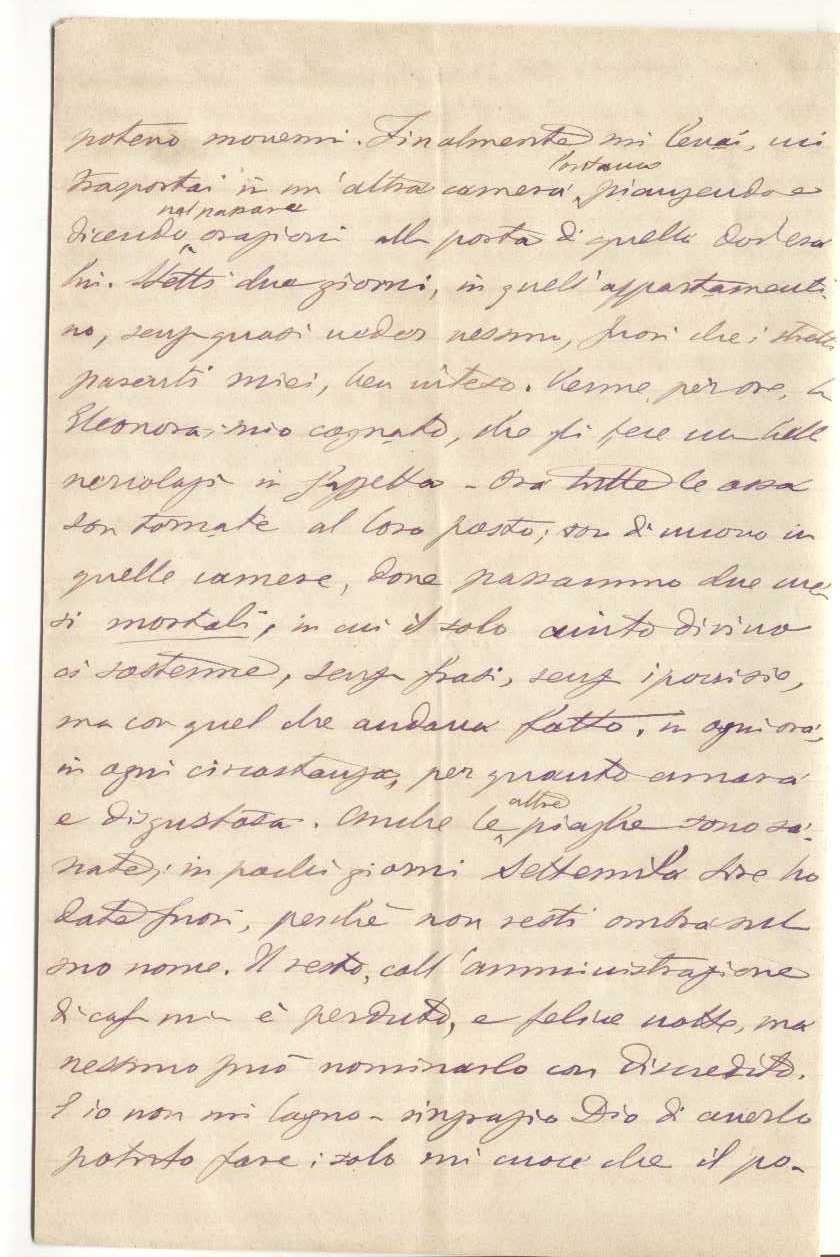 potevo movermi. Finalmente mi levai, mi
trasportai in un'altra camera lontana, piangendo e
dicendo nel passare orazioni alla porta di quella dov'era
lui. Stetti due giorni, in quell'appartamenti-
no, senza quasi veder nessuno, fuori che i stretti
parenti miei, ben inteso. Venne, per ore, la
Eleonora; mio cognato, che gli fece un bell
in Gazzetta - Ora tutte le cose
son tornate al loro posto; son di nuovo in
quelle camere, dove passammo due me-
si mortali, in cui il solo aiuto divino
ci sostenne, senza frasi, senza ipocrisie,
ma con quel che andava fatto, in ogni ora,
in ogni circostanza, per quanto amara
e disgustosa. Anche le altre piaghe sono sa-
nate; in pochi giorni settemila lire ho
date fuori, perchè non resti ombra sul
suo nome. Il resto, coll'amministrazione
di casa mia è perduto, e felice notte, ma
nessuno può nominarlo con discredito.
E io non mi lagno - ringrazio Dio di averlo
potuto fare; solo mi cuoce che il po-